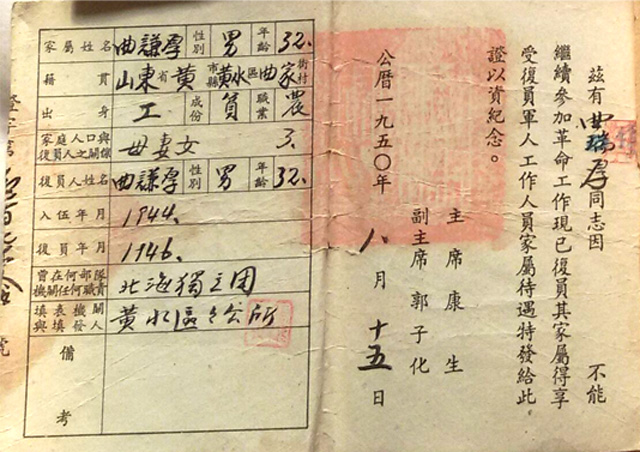 茲有曲瑞孚同志因 不能
繼續參加革命工作現已復員其家屬得享
受復員軍人工作人員家屬待遇特發給此。
證以資紀念。
主席康生
副主席郭子化
公曆一九五〇年八月十五日
家屬姓名 曲謙孚 性別 男 年齡 32.
籍貫 山東省黃縣市黃水區曲家街村
出身 工 成份 貧 職業 農
家庭人口與復員人之關係 母妻女 3.
復員人姓名 曲謙孚 性別 男 年齡 32.
入伍年月 1944.
復員年月 1946.
曾在何部隊機關任何職責 北海獨立团
填表機關與填發人 黃水區公所
備考